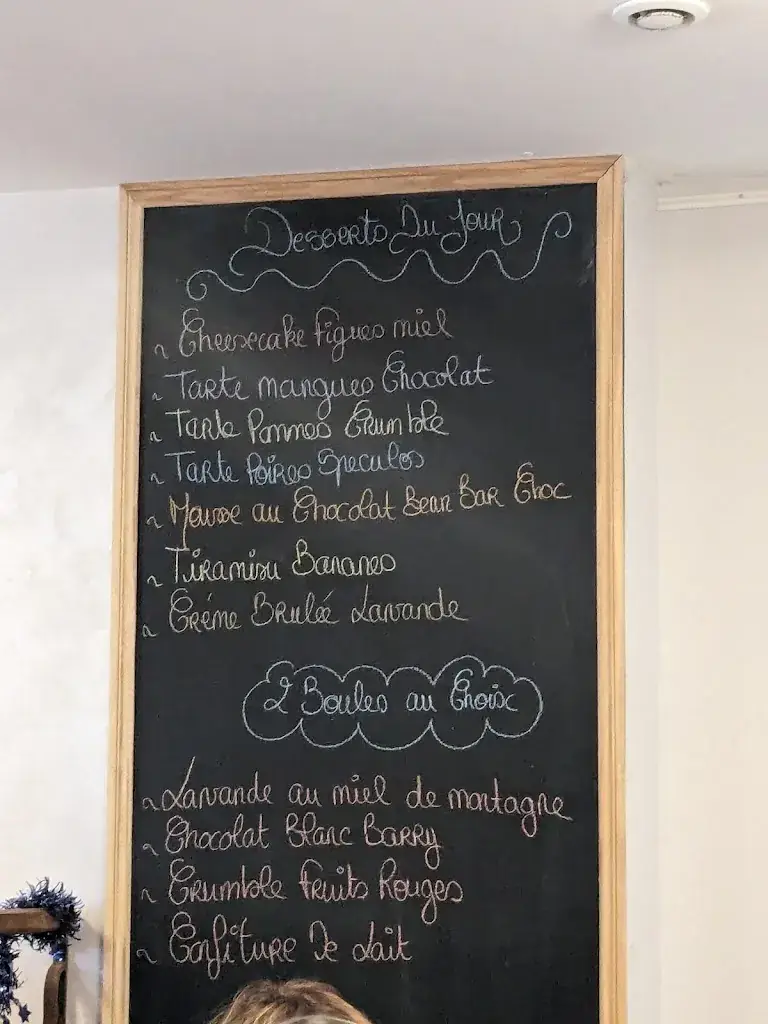 Desserts Du Jour
~ Cheesecake figues miel
~ Tarte mangues Chocolat
~ Tarte Pommes Crumble
~ Tarte Poires Speculos
~ Mousse au Chocolat Bean Bar Choc
~ Tiramisu Bananes
~ Créme Brulée Lavande
2 Boules au Choix
~ Lavande au miel de montagne
~ Chocolat Blanc Barry
~ Crumble fruits Rouges
~ Confiture De Lait